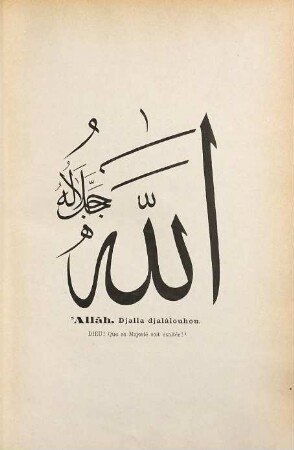 الله جل جلاله
"Allâh. Djalla djalâlouhou.
DIEU! Que sa Majesté soit exaltée!